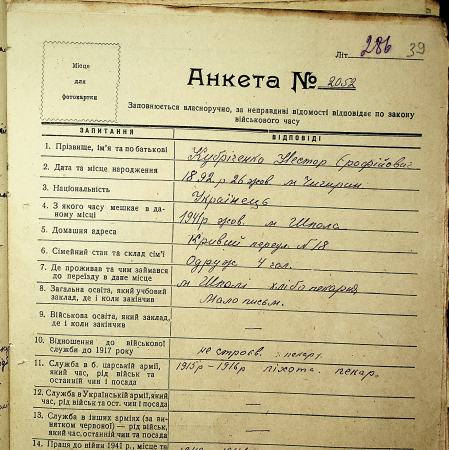 Літ. 286 39
Місце
для
фотокартки
Анкета № 2052
Заповнюється власноручно, за неправдиві відомості відповідає по закону
військового часу
ЗАПИТАННЯ ВІДПОВІДІ
1. Прізвище, ім'я та по батькові Нестор
2. Дата та місце народження 1892 р 26 жов м Чигирин
3. Національність Українець
4. З якого часу мешкає в да-
ному місці 1941р жов. м Шпола
5. Домашня адреса Кривий переул. N 18
6. Сімейний стан та склад сім'ї Одруж. 4 чол.
7. Де проживав та чим займався
до переїзду в дане місце м Шполі хлібо пекарня
8. Загальна освіта, який учбовий
заклад, де і коли закінчив Мало письм.
9. Військова освіта, який заклад,
де і коли закінчив —
10. Відношення до військової
служби до 1917 року не строєв. пекар
11. Служба в б. царській армії,
який час, рід військ та
останній чин і посада 1915р – 1916р піхота. пекар
12. Служба в Українській армії, який
час, рід військ та ост. чин і посада —
13. Служба в інших арміях (за ви-
нятком червоної) — рід військ,
який час, останній чин та посада —
14. Праця до війни 1941 р., місце та